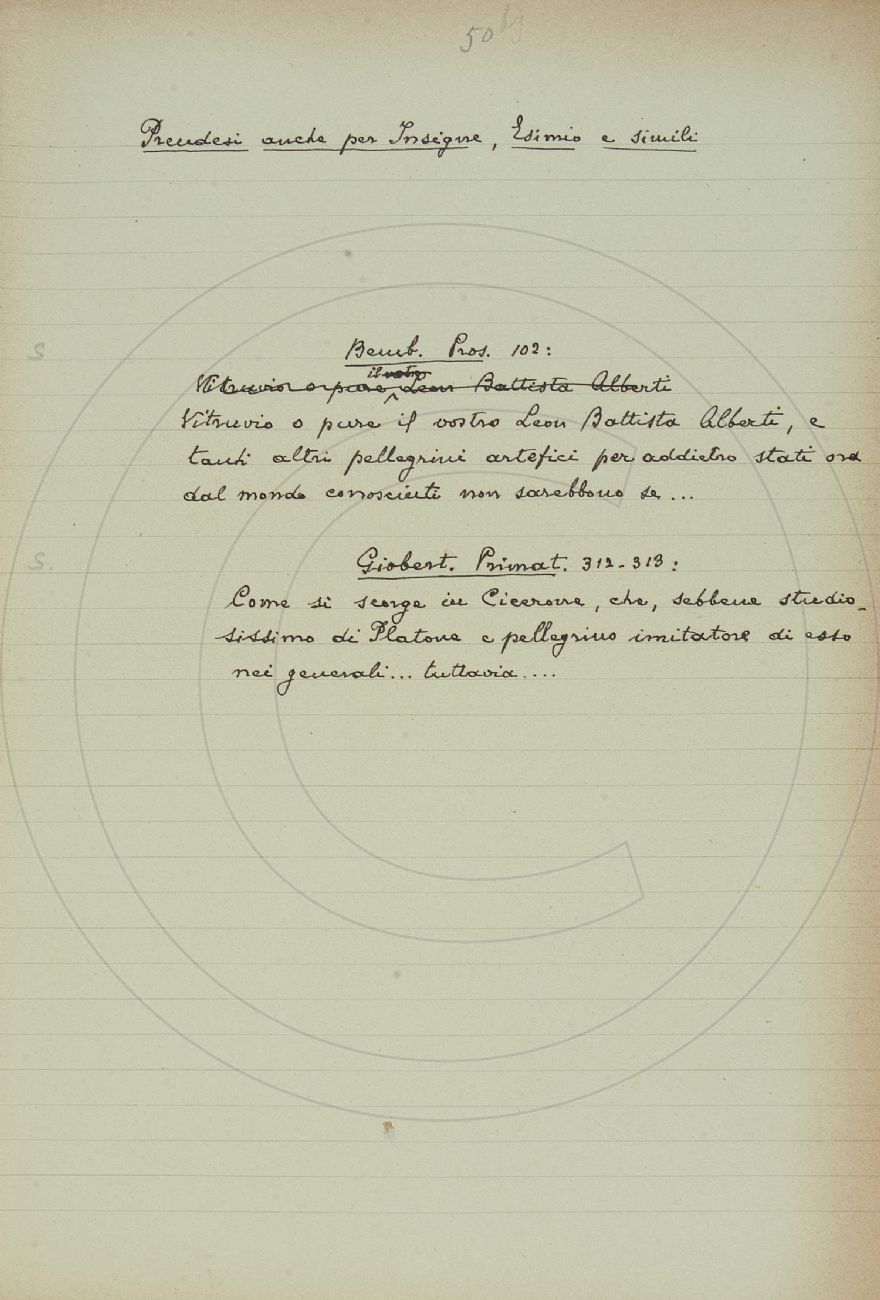 50
Prendesi anche per Insigne, Esimio e simili
Bemb. Pros. 102:
il vostro
Vitruvio o pure Leon Battista Alberti
Vitruvio o pure il vostro Leon Battista Alberti, e
tanti altri pellegrini artefici per addietro stati ora
dal mondo conosciuti non sarebbono se ...
Giobert. Primat. 312-313:
Come si scorge in Cicerone, che, sebbene studio-
sissimo di Platone e pellegrino imitatore di esso
nei generali... tuttavia....